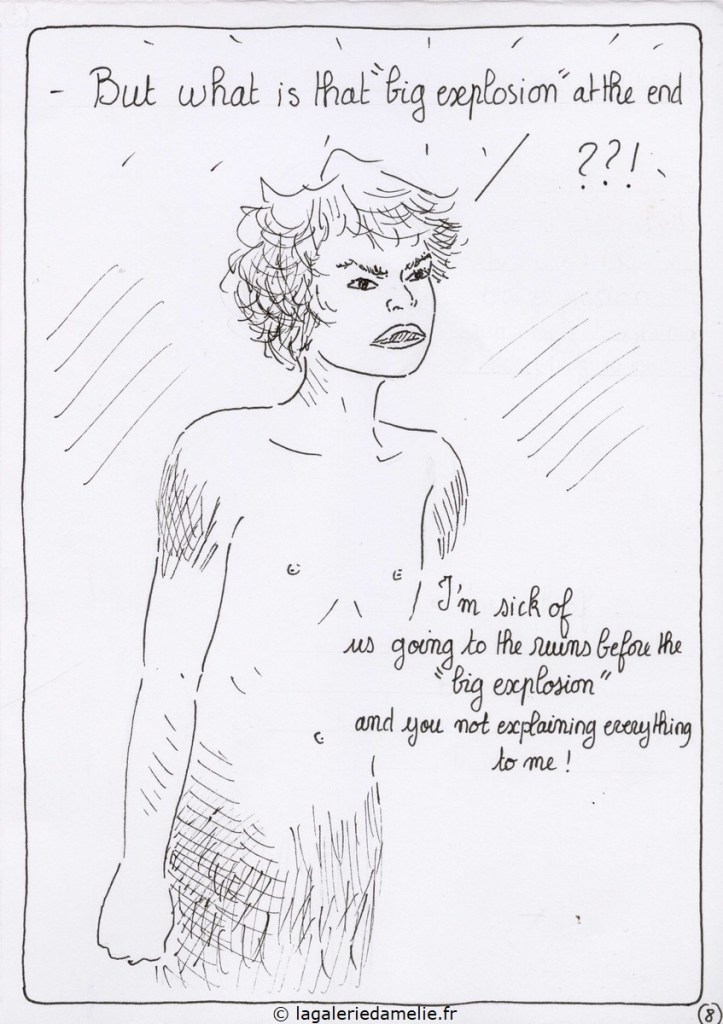 - But what is that "big explosion" at the end
??!
I'm sick of
us going to the ruins before the
"big explosion"
and you not explaining everything
to me!
8
© lagaleriedamelie.fr